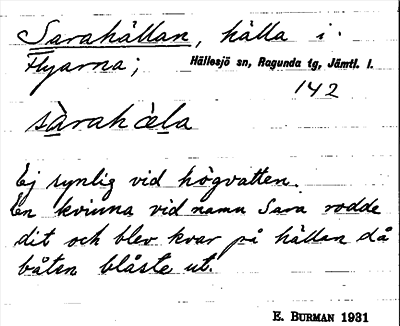 Sarahällan, hälla i
Flyarna; Hällesjö sn, Ragunda tg, Jämtl. l.
142
sàrahòela
Ej synlig vid högvatten.
En kvinna vid namn Sara rodde
dit och blev kvar på hällan då
båten blåste ut.
E. BURMAN 1931